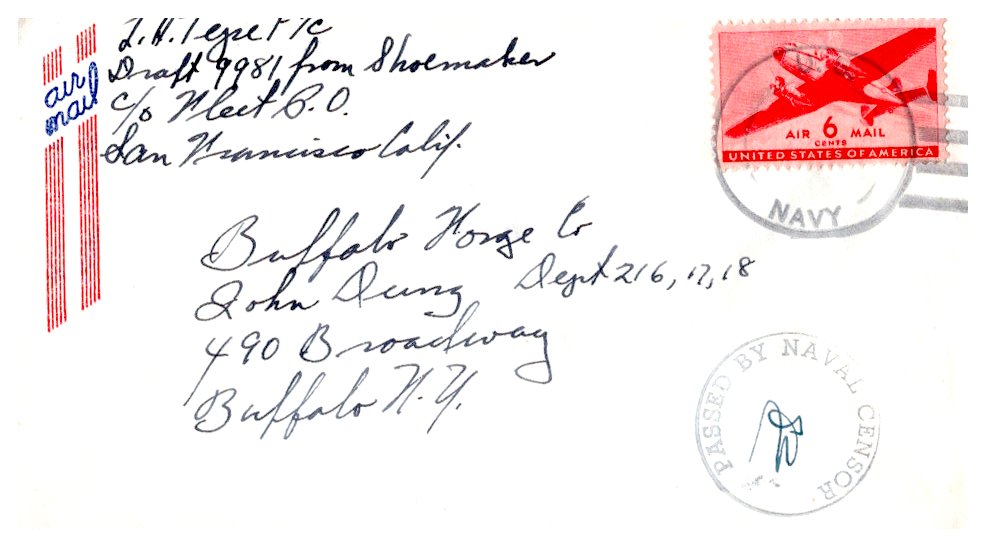 air
mail
Draft 9981 from Shoemaker
c/o Fleet P.O.
San Francisco Calif.
AIR 6 MAIL
CENTS
UNITED STATES OF AMERICA
NAVY
Buffalo Forge Co
John Dung Dept 216, 17, 18
490 Broadway
Buffalo N.Y.
PASSED BY NAVAL CENSOR